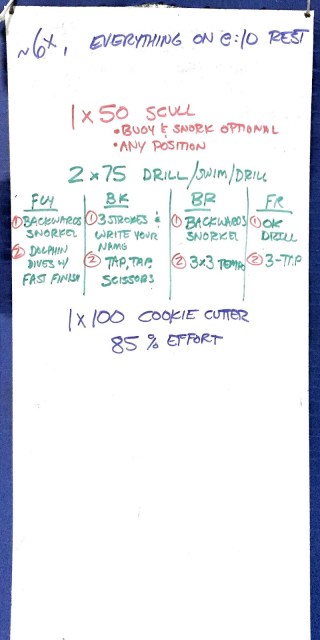 ~6x, EVERYTHING ON @:10 REST
1 x 50 SCULL
• BUOY & SNORK OPTIONAL
• ANY POSITION
2 x 75 DRILL/SWIM/DRILL
FLY
① BACKWARDS
SNORKEL
② DOLPHIN
DIVES W/
FAST FINISH
BK
① 3 STROKES &
WRITE YOUR
NAME
② TAP, TAP,
SCISSORS
BR
① BACKWARDS
SNORKEL
② 3x3 TEMPO
FR
① OK
DRILL
② 3-TAP
1 x 100 COOKIE CUTTER
85 % EFFORT